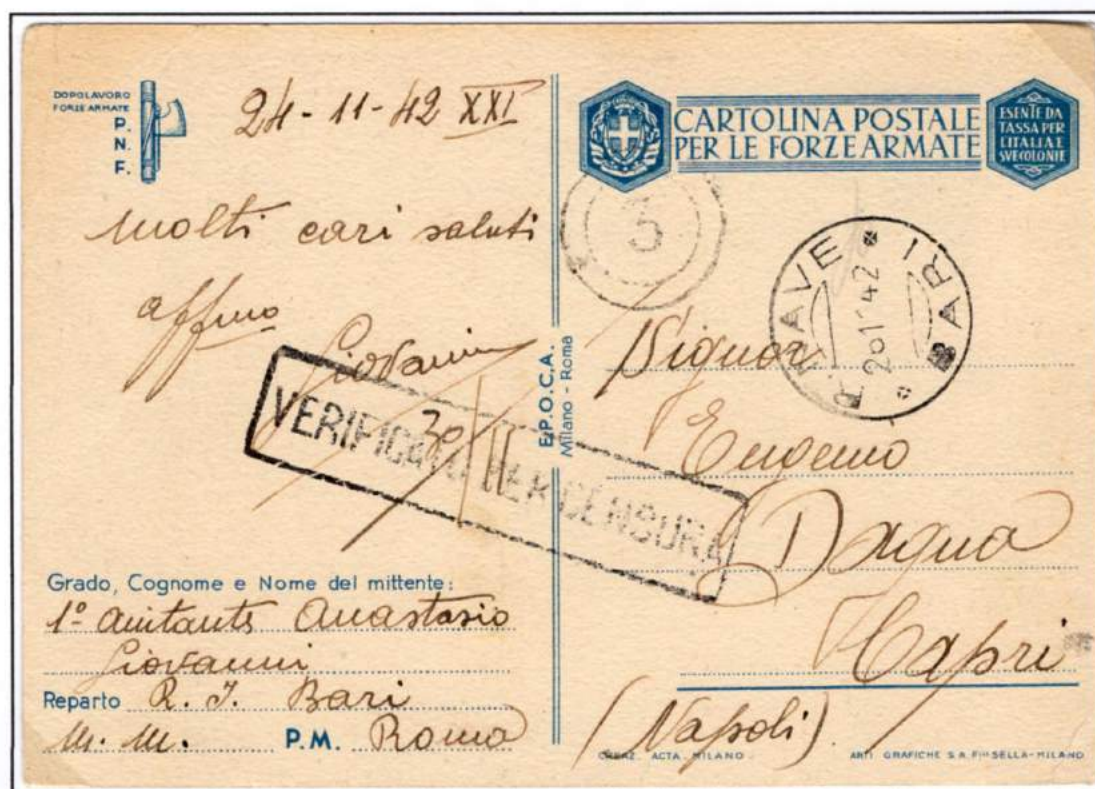 DOPOLAVORO
FORZE ARMATE
P.
N.
F.
24-11-42 XXI
Molti cari saluti
affmo
Giovanni
30/11
VERIFICATO PER CENSURA
Grado, Cognome e Nome del mittente:
1º aiutante Anastasio
Giovanni
Reparto R. I. Bari
M. M. P.M. Roma
E.P.O.C.A.
Milano - Roma
CARTOLINA POSTALE
PER LE FORZE ARMATE
ESENTE DA
TASSA PER
L'ITALIA E
SVE COLONIE
3
R. NAVE
BARI
Signor
Eugenio
Dagua
Capri
(Napoli)
CREAZ. ACTA. MILANO. ARTI GRAFICHE S.A. Flli SELLA-MILANO